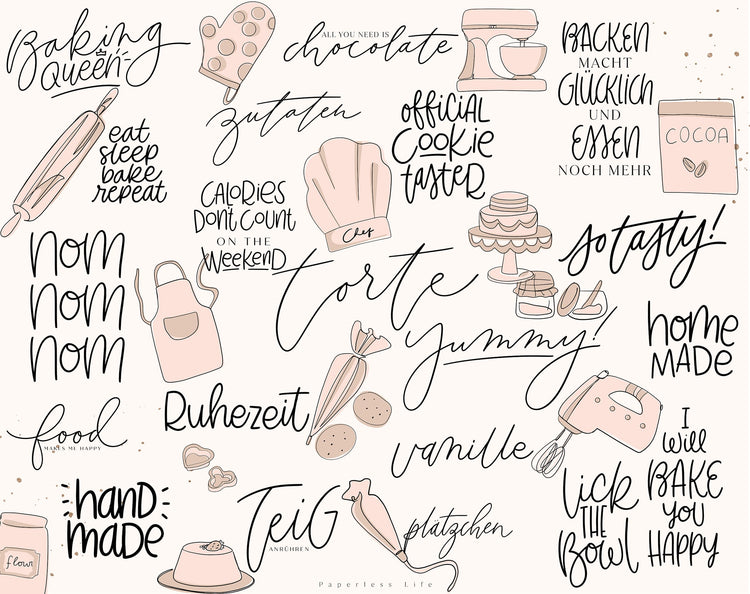 Baking
Queen
ALL YOU NEED IS
chocolate
BACKEN
MACHT
GLÜCKLICH
UND
ESSEN
NOCH MEHR
COCOA
zutaten
official
Cookie
taster
eat
sleep
bake
repeat
CALORIES
DON'T COUNT
ON THE
WEEKEND
Chef
so tasty!
nom
nom
nom
torte
yummy!
home
MADE
Ruhezeit
food
MAKES ME HAPPY
vanille
I
will
BAKE
you
HAPPY
lick
THE
Bowl
hand
made
TEIG
ANRÜHREN
plätzchen
flour
Paperless Life